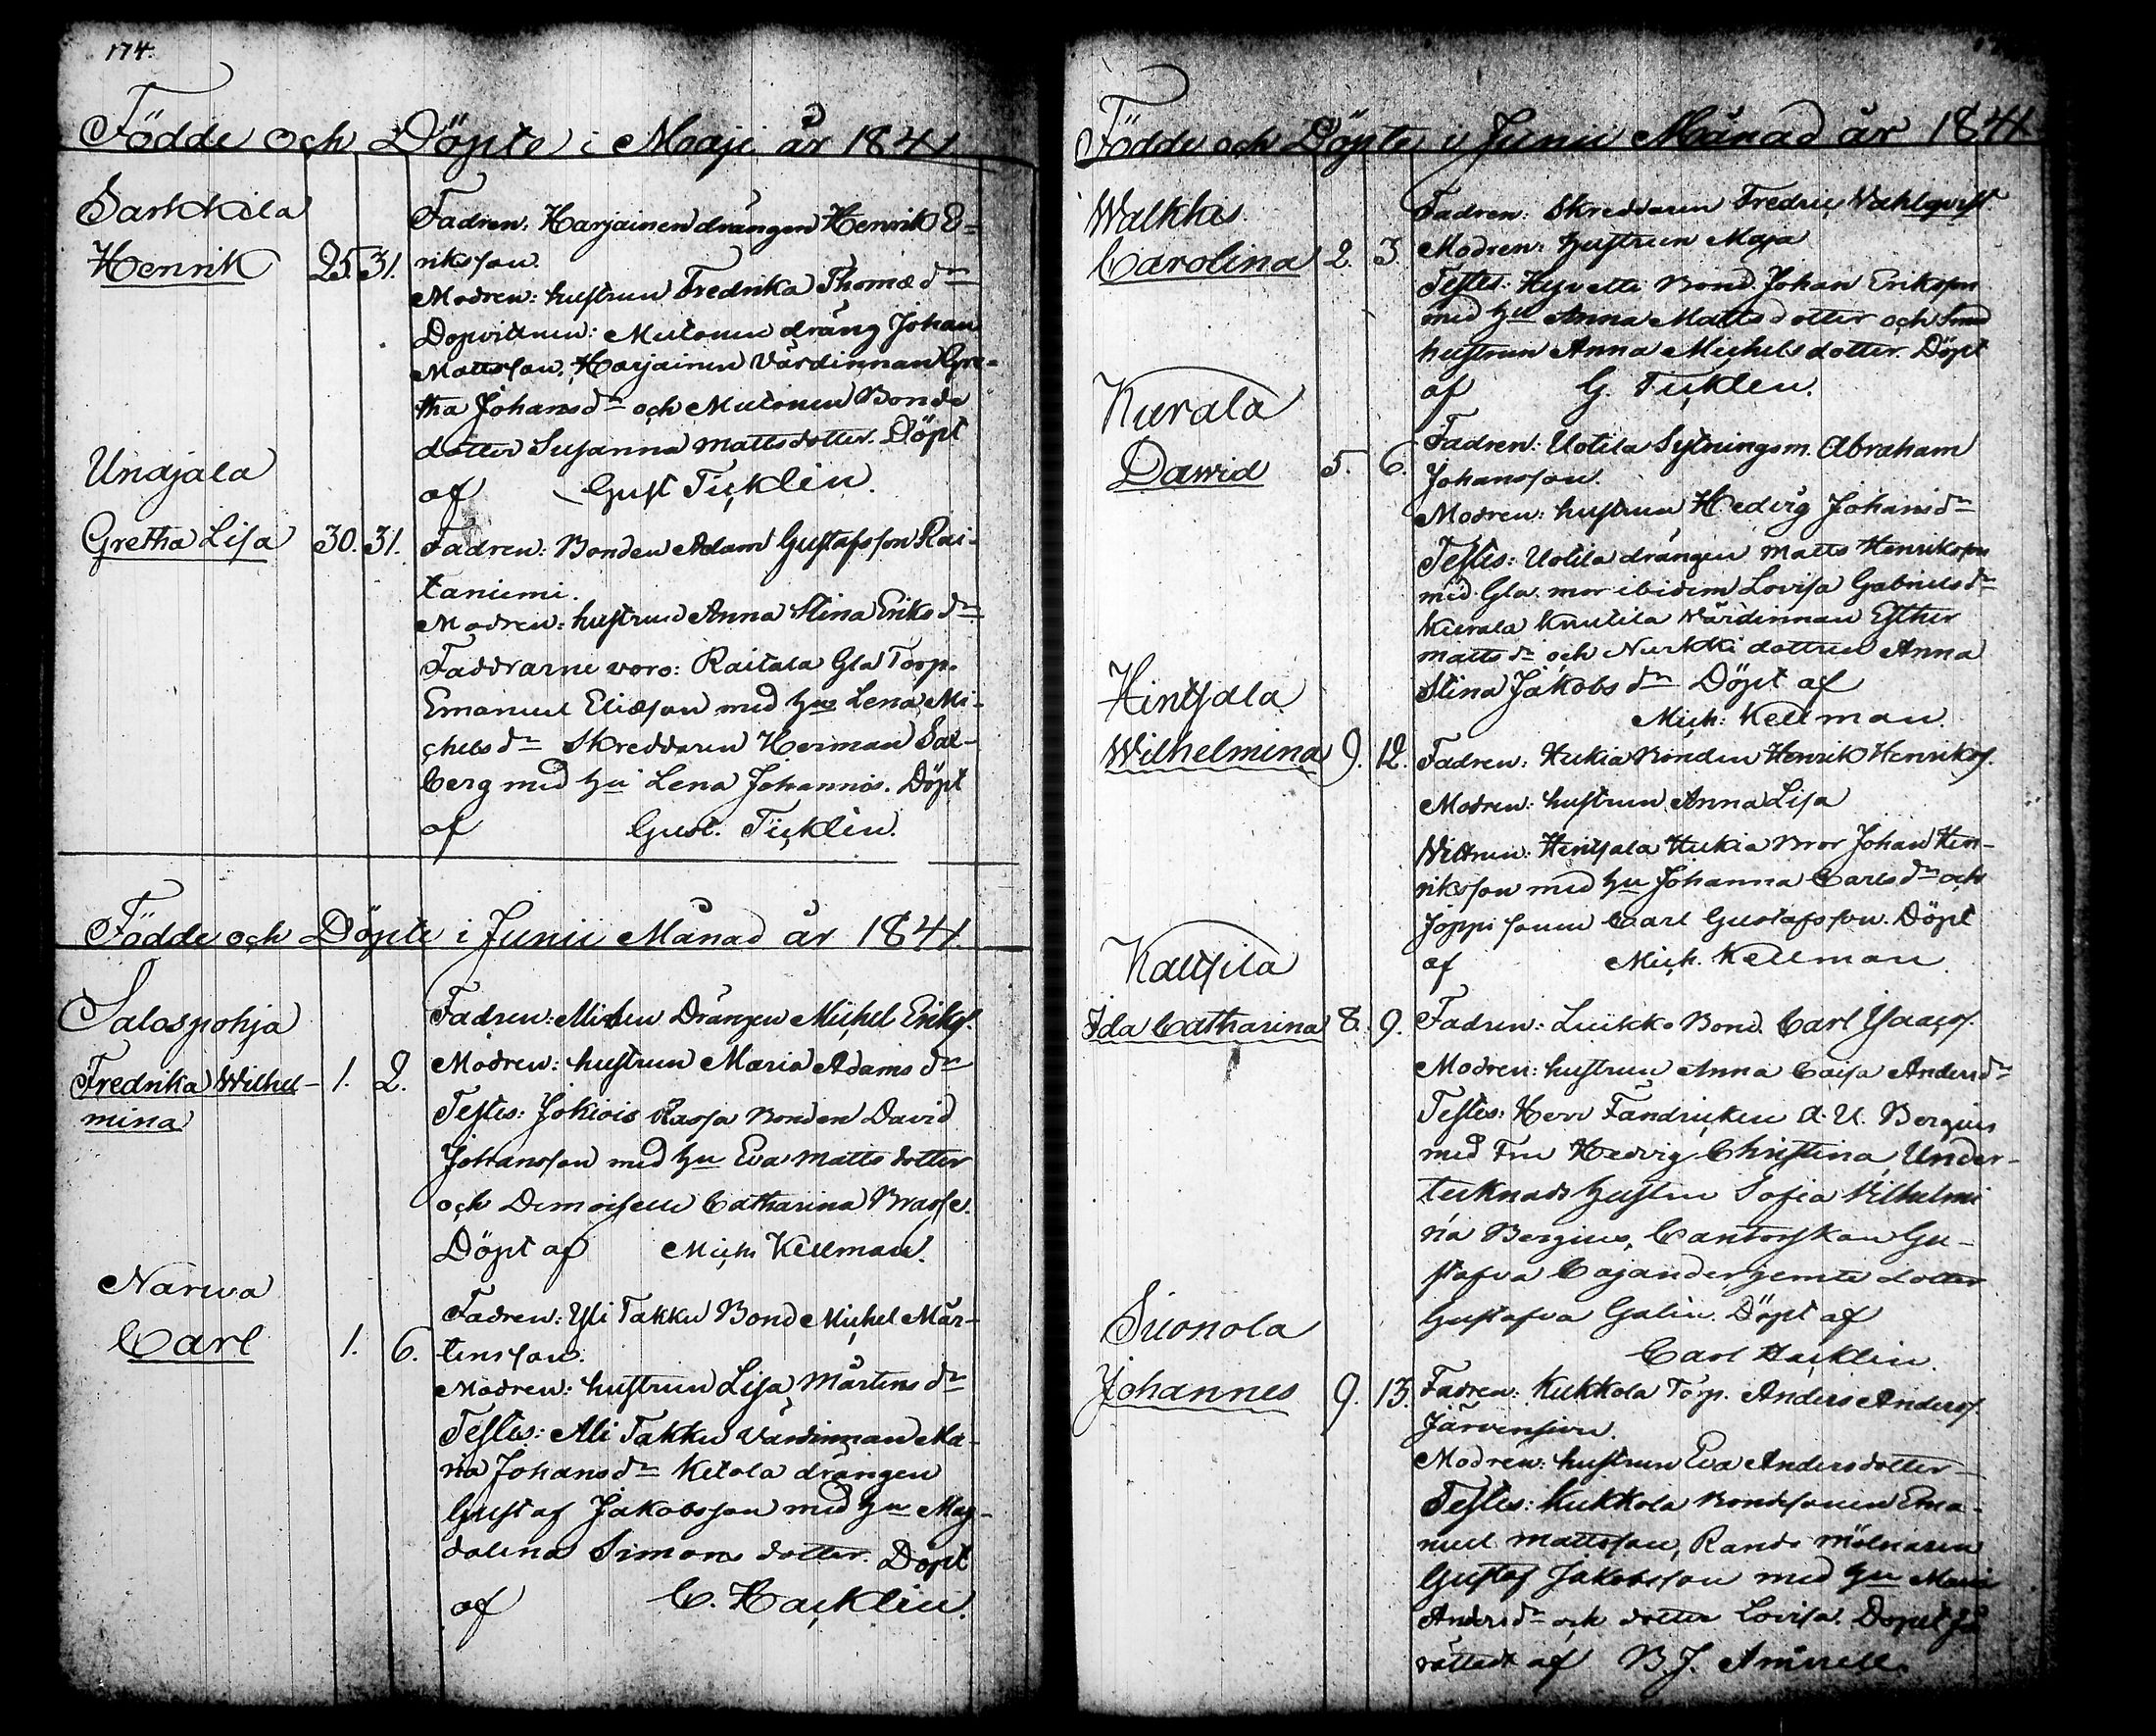 174.
Födde och Döpte i Maji år 1841
Sarkkila
Henrik 25. 31.
Fadren: Harjainen drängen Henrik E=
riksson.
Modren: hustrun Fredrika Thomæ dr
Dopvittnen: Mutonen dräng Johan
Mattsson, Harjainen Värdinnan Gre=
tha Johansdr och Mutonen Bonde
dotter Susanna Mattsdotter. Döpt
af Gust Ticklén.
Undjala
Gretha Lisa 30. 31.
Fadren: Bonden Adam Gustafsson Rai-
taniemi.
Modren: hustrun Anna Stina Eriks dr
Faddrarne voro: Raitala Gla Torp.
Emanuel Eliæson med hu Lena Mi-
chels dr Skreddaren Herman Sal-
berg med hu Lena Johannis. Döpt
af Gust. Ticklén.
Födde och Döpte i Junii Månad år 1841.
Salospohja
Fredrika Wilhel-
mina 1. 2.
Fadren: Drängen Michel Eriks.
Modren: hustrun Maria Adams dr
Testes: Jokiois Rassa Bonden David
Johansson med hu Eva Matts dotter
och Demoiselle Catharina Brasse.
Döpt af Mich Kellman.
Narwa
Carl 1. 6.
Fadren: Yli Takku Bond Michel Mår-
tensson.
Modren: hustrun Lisa Mårtens dr
Testes: Ali Takku Värdinnan Ma-
ria Johans dr Ketola drängen
Gustaf Jakobsson med hu Mag-
dalena Simons dotter. Döpt
af C. Hacklin.
Födde och Döpte i Junii Månad år 1841
Walkkis
Carolina 2. 3.
Fadren: Skreddaren Fredric Wahlqvist
Modren: hustrun Maja
Testes: Hyvetti Bond. Johan Eriksson
med hu Anna Mattsdotter och Smed
hustrun Anna Michelsdotter. Döpt
af G. Ticklen.
Kurala
Dawid 5. 6.
Fadren: Uotila Sytningsm. Abraham
Johansson.
Modren: hustrun Hedvig Johans dr
Testes: Uotila drängen Matts Henriksson
med Gla. mor ibidem Lovisa Gabriels dr
Kurala Knutila Värdinnan Esther
Matts dr och Nurkki dottren Anna
Stina Jakobs dr Döpt af
Mich: Kellman.
Hintsala
Wilhelmina 9. 12.
Fadren: Hukia Bonden Henrik Henriks.
Modren: hustrun Anna Lisa
Vittnen: Hintsala Hukia Bror Johan Hen-
riksson med hu Johanna Carls dr och
Joppi sonen Carl Gustafsson. Döpt
af Mich. Kellman.
Kautsila
Ida Catharina 8. 9.
Fadren: Luikko Bond. Carl Ysaacs.
Modren: hustrun Anna Caisa Anders dr
Testes: Herr Fändricken A. U. Bergius
med Fru Hedvig Christina, Under-
tecknads hustru Sofia Vilhelmi
na Bergius, Cantorskan Gu-
stafva Cajander jemte dotter
Gustafva Galin. Döpt af
Carl Hacklin.
Suonola
Johannes 9. 13.
Fadren: Kukkola Torp. Anders Anders.
Järvensivu.
Modren: hustrun Eva Andersdotter
Testes: Kukkola Bondesonen Ema-
nuel Mattsson, Rando Mölnaren
Gustaf Jakobsson med hu Maria
Anders dr och dotter Lovisa. Dopet för
rättadt af B. J. Amnell.